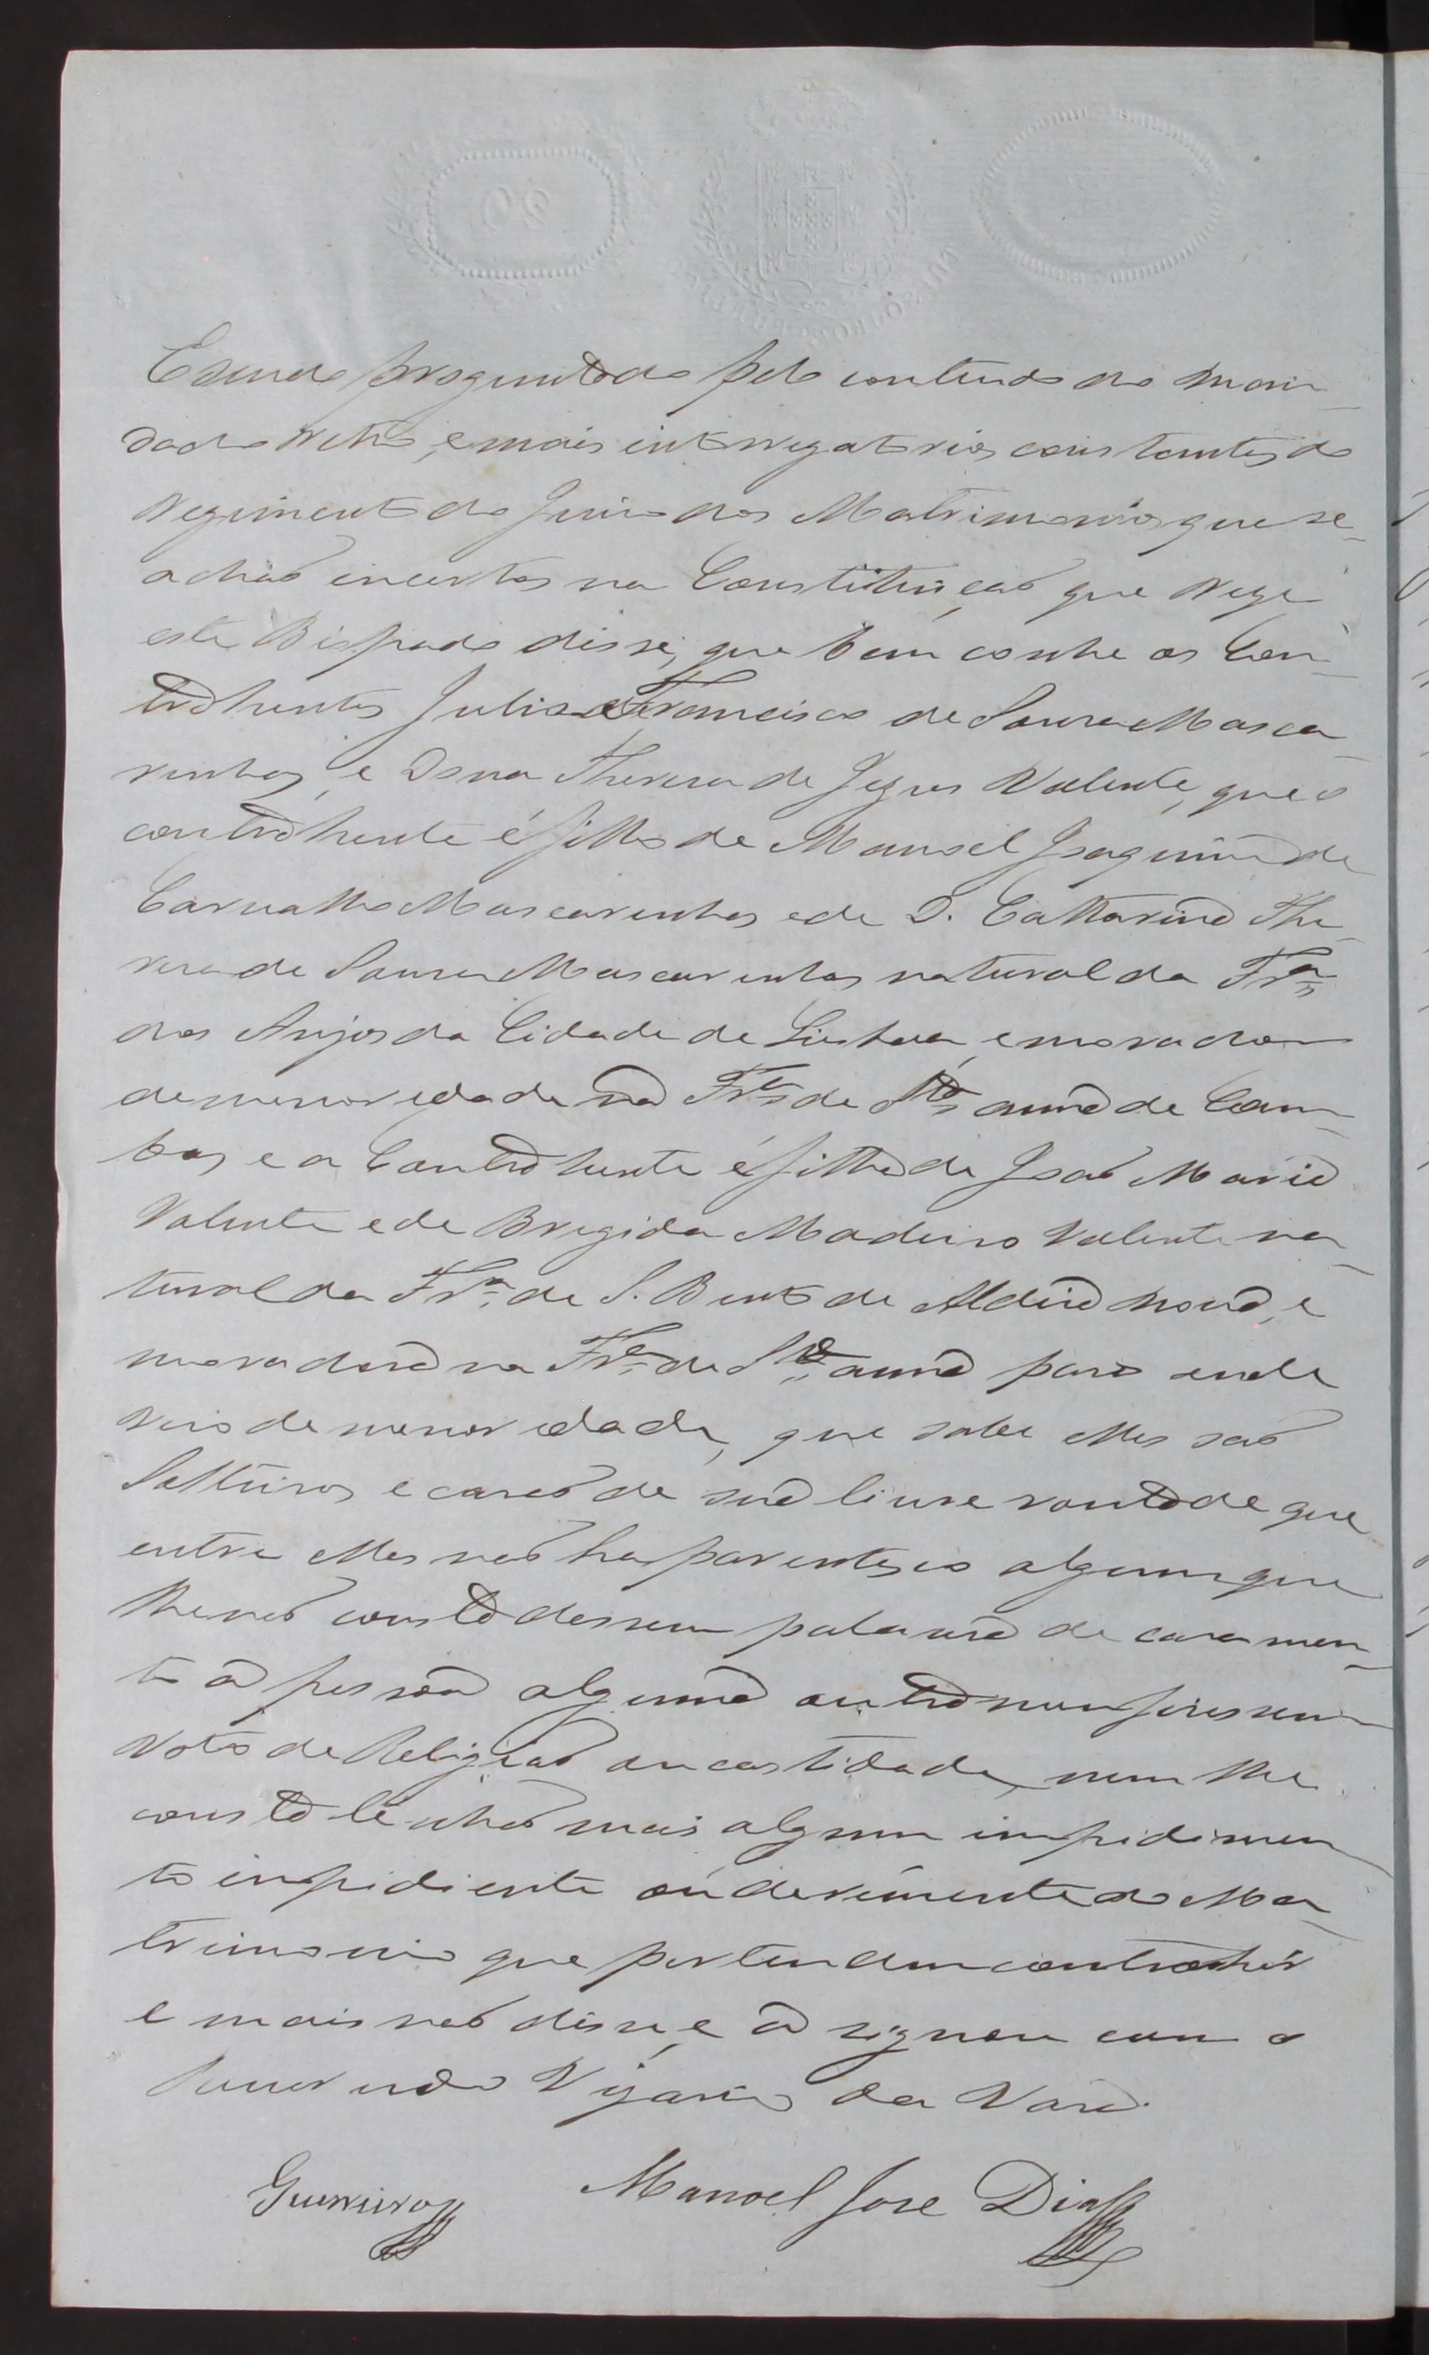 E sendo proguntado pelo contiudo do man-
dado retro, e mais interrogatorios constantes do
Regimento do Juiso dos Matrimonios que se-
achaõ incertos na Constituiçaõ que rege
este Bispado disse, que bem conhe os Con-
trahentes Julio Francisco de Sousa Masca-
renhas, e Dona Thereza de Jezus Valente, que o
contrahente é filho de Manoel Joaquim de
Carvalho Mascarenhas e de D. Catharina The-
resa de Sousa Mascarenhas natural da Fra
dos Anjos da Cidade de Lisboa, e morador
de menor edade na Fra de Sta anna de Cam-
bas, e a Contrahente é filha de Joaõ Maria
Valente e de Bregida Madeiro Valente na-
tural da Fra de S. Bento de Aldeia nova, e
moradora na Fra de Sta anna para onde
veio de menor edade, que sabe elles saõ
Solteiros e casaõ de sua livre vontade que
entre elles naõ ha parentesco algum que
lhe naõ consta dessem palavra de casamen-
to a pessoa alguma outra nem fisessem
voto de Religiaõ ou castidade, nem lhe
consta tenhaõ mais algum impidimen
to impidiente ou derimente ao Ma-
trimonio que pertendem contrahir
e mais naõ disse, e a signou com o
Reverendo Vigario da Vara.
Guerreiro Manoel Jose Dias